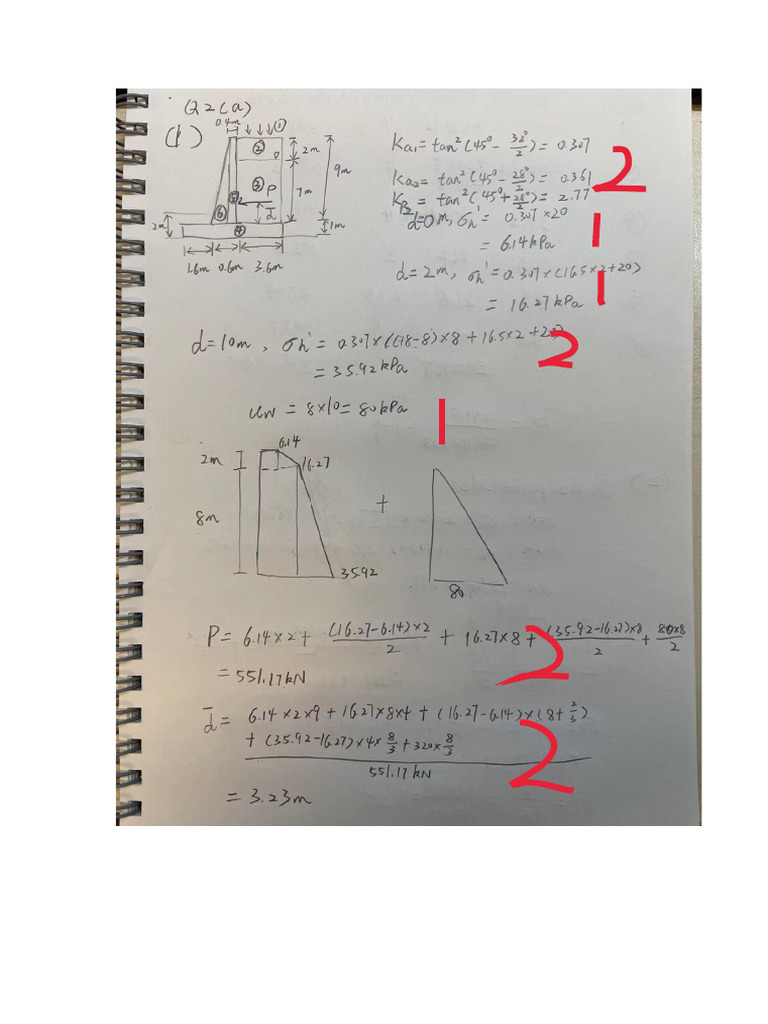 Q2 (a)
(1)
0.4m ①
② 2m
9m
③ P 7m
⑤
⑥ d̄
2m ④ 1m
1.6m 0.6m 3.6m
Ka1 = tan²(45° - 32°/2) = 0.307
Ka2 = tan²(45° - 28°/2) = 0.361
2
Kp2 = tan²(45° + 28°/2) = 2.77
d=0m, σh' = 0.307×20
= 6.14kPa
1
d=2m, σh' = 0.307×(16.5×2+20)
= 16.27kPa
1
d=10m, σh' = 0.307×((18-8)×8+16.5×2+20)
= 35.92kPa
2
uw = 8×10 = 80kPa
1
6.14
2m 16.27
8m +
35.92 80
P = 6.14×2 + (16.27-6.14)×2/2 + 16.27×8 + (35.92-16.27)×8/2 + 80×8/2
= 551.17kN
2
d̄ = 6.14×2×9 + 16.27×8×4 + (16.27-6.14)×(8+2/3)
+ (35.92-16.27)×4×8/3 + 320×8/3
551.17kN
= 3.23m
2